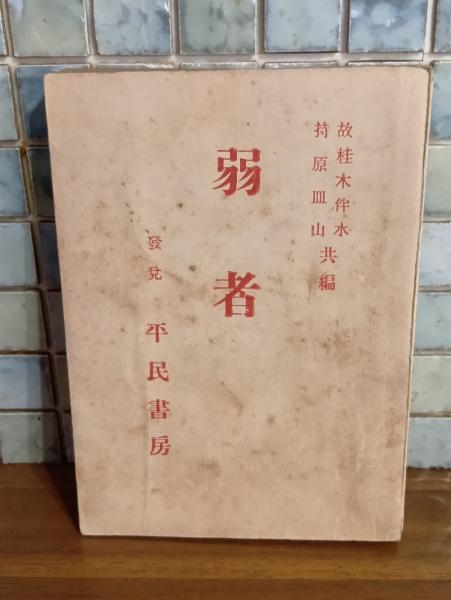 故桂木伴水
持原皿山共編
弱者
發兌 平民書房